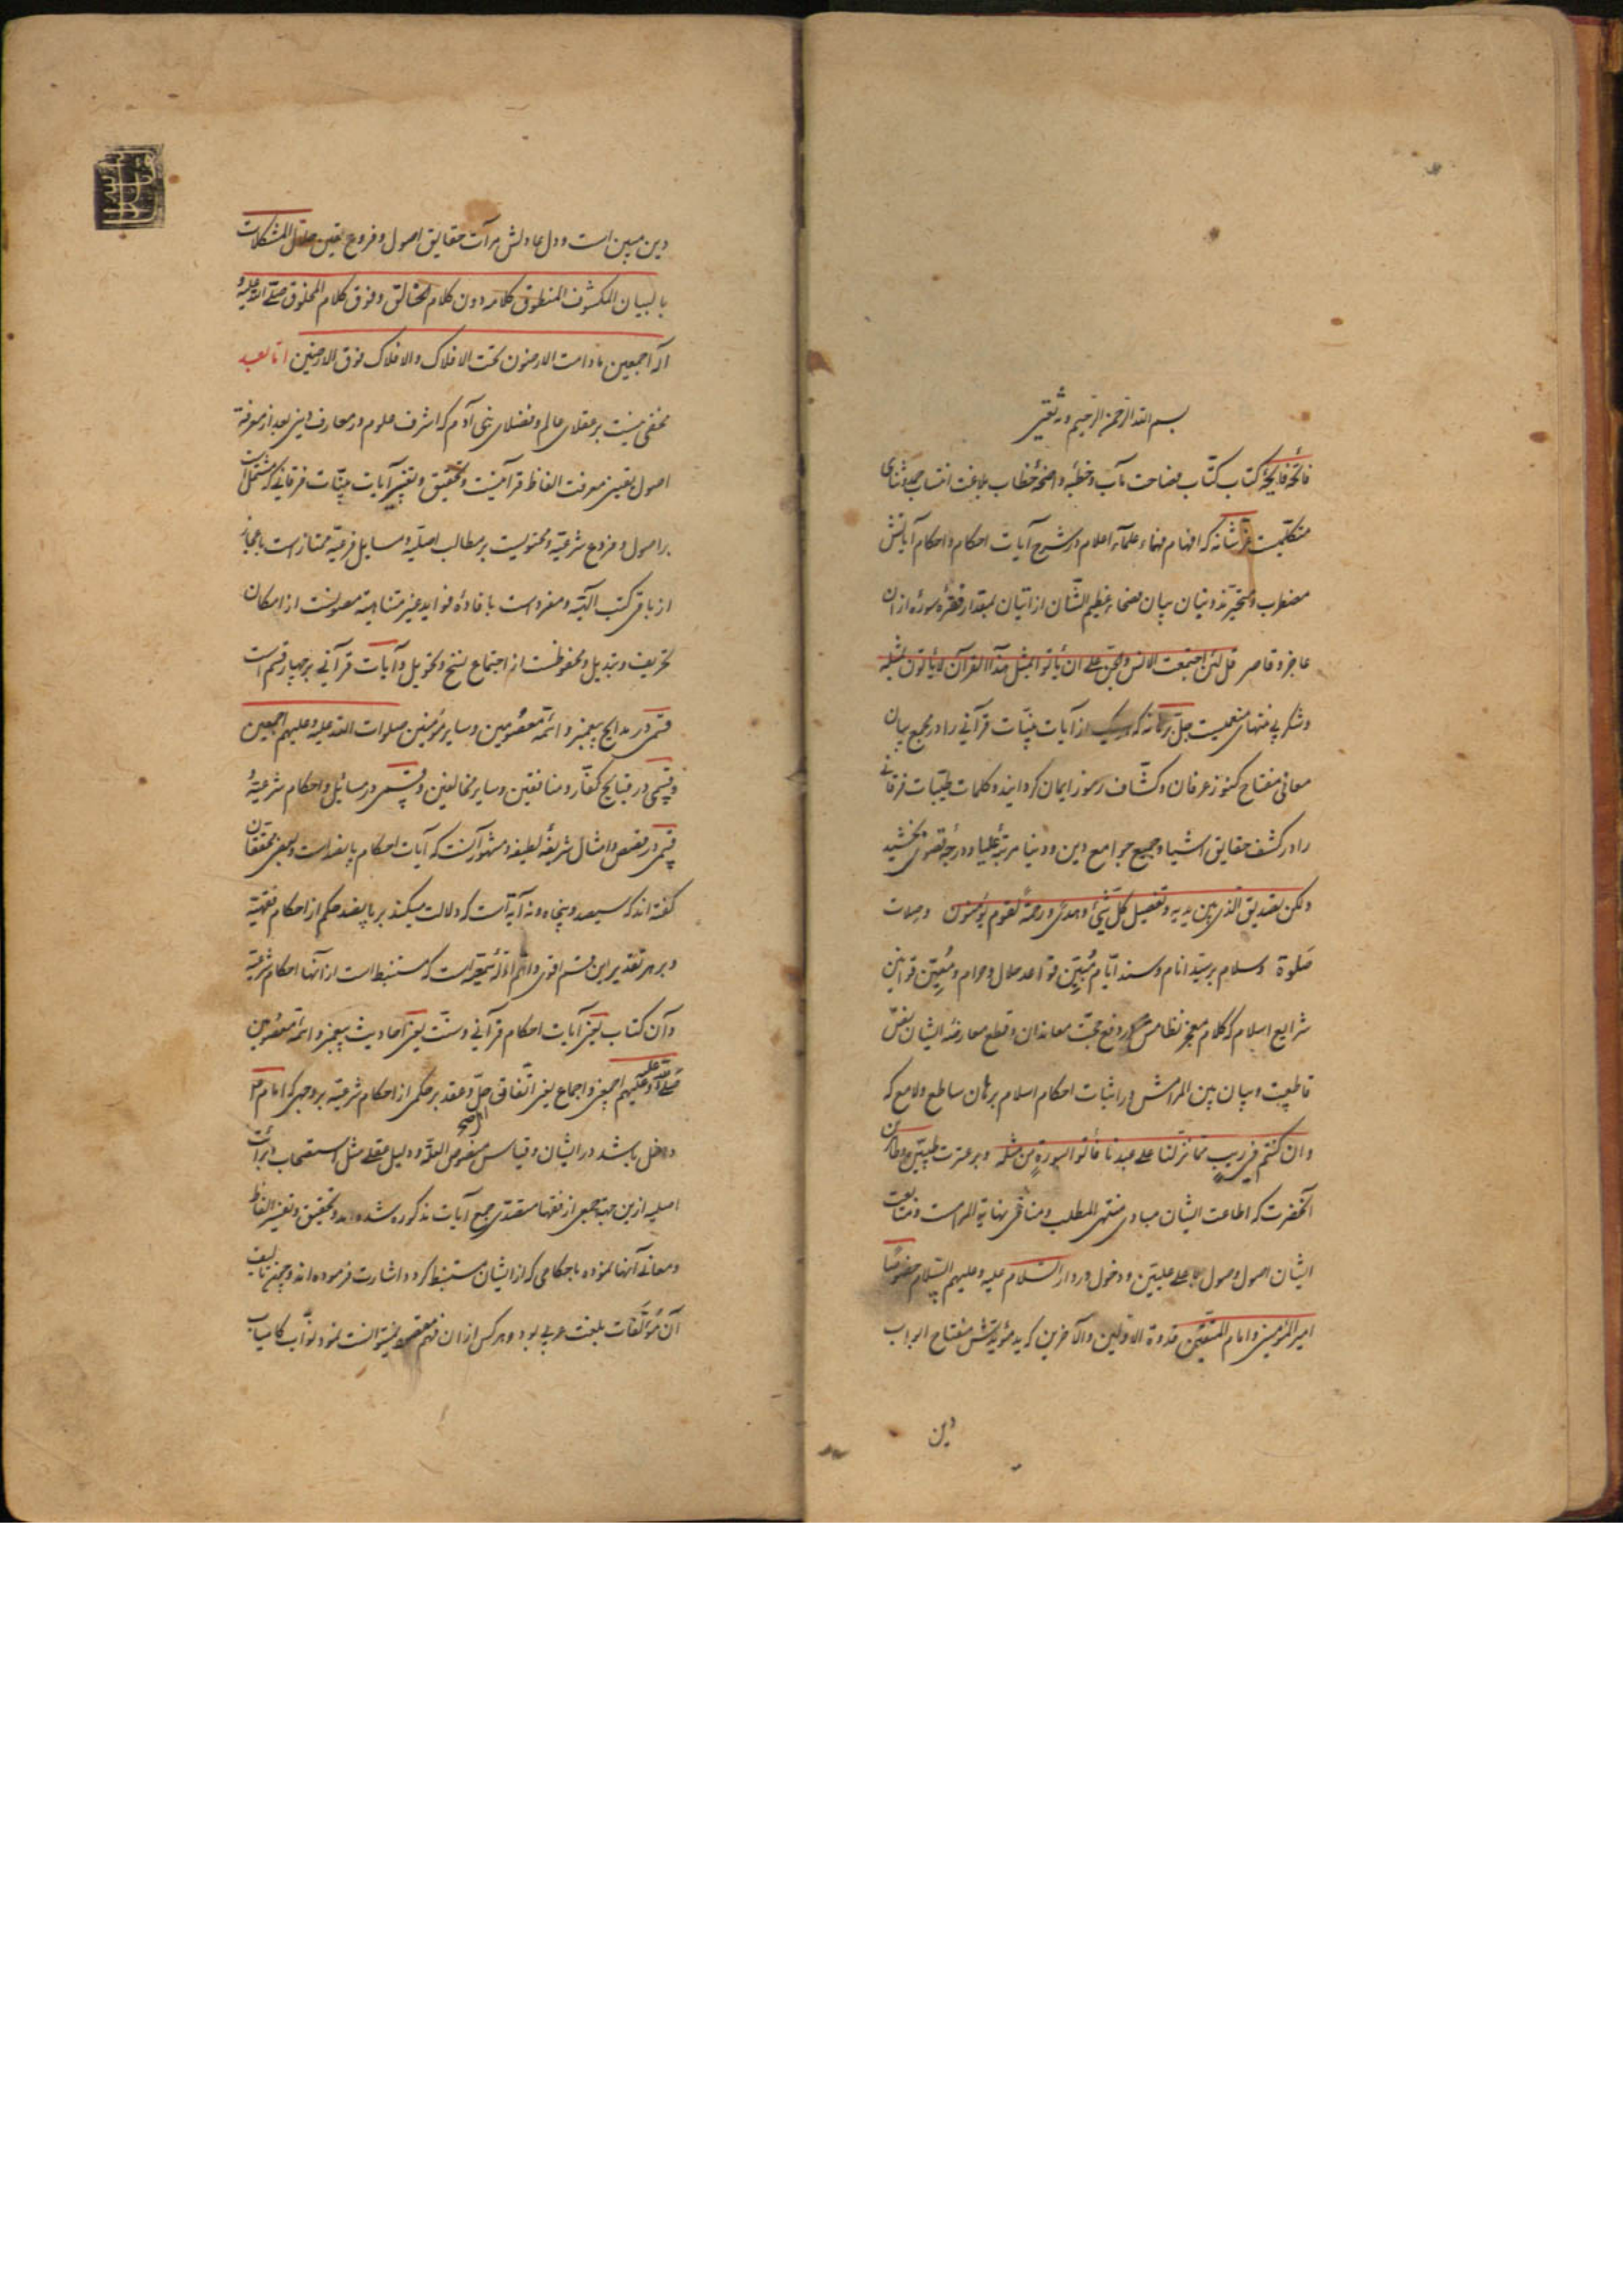 بسم الله الرحمن الرحیم و به ثقتی
فاتحهٔ فایحهٔ کتاب کتّاب فصاحت مآب و خطبهٔ واضحهٔ خطاب بلاغت انتساب حمد و ثنای
متکلمیست عزّ شانه که افهام فهماء علمآء اعلام در شرح آیات احکام و احکام آیاتش
مضطرب و متحیّرند و بنیان بیان فصحاء عظیم الشّان از اتیان بمقدار فقرهٔ سوره از ان
عاجز و قاصر قل لئن اجتمعت الانس والجنّ علی ان یأتوا بمثل هذا القرآن لا یأتون بمثله
و شکر بی منتهای منعمیست جلّ برهانه که هر یک از آیات بیّنات قرآنی را در مجمع بیان
معانی مفتاح کنوز عرفان و کشّاف رموز ایمان گردانیده و کلمات طیّبات فرقانی
را در کشف حقایق اشیا و جمیع جوامع دین و دنیا مرتبهٔ علیا و درجهٔ قصوی بخشید
ولکن تصدیق الذی بین یدیه و تفصیل کلّ شیء و هدی و رحمة لقوم یؤمنون وصلات
صلوة و سلام بر سیّد انام و سند ایّام مُبیّن قواعد حلال و حرام و مُعیّن قوانین
شرایع اسلام که کلام معجز نظامش در دفع حجّت معاندان و قطع معارضهٔ ایشان نصّ
قاطعیت و بیان بین المرامش در اثبات احکام اسلام برهان ساطع و لامع که
وان کنتم فی ریب مما نزّلنا علی عبدنا فأتوا بسورة من مثله و بر عترت طیبّین و طاهرین
آنحضرت که اطاعت ایشان مبادی منتهی المطلب و منافی نهایة المرامست و متابعت
ایشان اصول وصول باعلی علیّین و دخول در دار السّلام علیه و علیهم السّلام خصوصًا
امیر المؤمنین و امام المتّقین قدوة الاوّلین والآخرین که ید مؤیدتش مفتاح ابواب
دین
دین مبین است و دل عادلش مرآت حقایق اصول و فروع یقین حلّال المشکلات
بالبیان المکشوف المنطوق کلامه دون کلام الخالق و فوق کلام المخلوق صلّی الله علیه و
آله اجمعین ما دامت الارضون تحت الافلاک والافلاک فوق الارضین امّا بعد
مخفی نیست بر عقلای عالم و فضلای بنی آدم که اشرف علوم و معارف دینی بعد از معرفة
اصول یقینی معرفت الفاظ قرآنیست و تحقیق و تفسیر آیات بیّنات فرقانی که مشتملست
بر اصول و فروع شرعیّه و محتویست بر مطالب اصلیّه و مسایل فرعیّه ممتاز است باعجاز
از باقی کتب الهیّه و مفرد است بافادهٔ فواید غیر متناهیه مصونست از امکان
تحریف و تبدیل و محفوظست از اجتماع نسخ و تحویل و آیات قرآنی بر چهار قسم است
قسمی در مدایح پیغمبر و ائمّهٔ معصومین و سایر مؤمنین صلوات الله علیه و علیهم اجمعین
و قسمی در قبایح کفّار و منافقین و سایر مخالفین و قسمی در مسائل و احکام شرعیّه و
قسمی در قصص و امثال شریفهٔ لطیفه و مشهور آنست که آیات احکام پانصد است و بعضی محققان
گفته اند که سیصد و پنجاه و نه آیه است که دلالت میکند بر پانصد حکم از احکام فقهیّه
و بر هر تقدیر این قسم اقوی و اتمّ ادلّهٔ شرعیّه است که مستنبط است از آنها احکام شرعیّه
و آن کتاب یعنی آیات احکام قرآنی و سنّت یعنی احادیث پیغمبر و ائمّهٔ معصومین
صلّی الله علیه و علیهم اجمعین و اجماع یعنی اتّفاق حلّ و عقد بر حکمی از احکام شرعیّه بر وجهی که امام
داخل باشد در ایشان و قیاس منصوص العلّه و دلیل عقلی مثل استصحاب و برائت
اصلیه ازین جهة جمعی از فقها متصدّی جمع آیات مذکوره شده اند و تحقیق و تفسیر الفاظ
و معانی آنها نموده باحکامی که از ایشان مستنبط گردد اشارت فرموده اند و چون تالیف
آن مؤلّفات بلغت عربی بود و هر کس از ان فهم مقصود نمیتوانست نمود نوّاب کامیاب